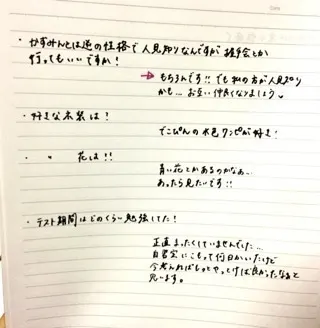 ・かずみんとは逆の性格で人見知りなんですが握手会とか
行ってもいいですか！
→ もちろんです!! でも私の方が人見知り
かも… お互い仲良くなりましょう
・好きな衣装は！
でこぴんの水色ワンピが好き！
・〃 花は!!
青い花とかあるのかなぁ…
あったら見たいです!!
・テスト期間はどのくらい勉強してた！
正直まったくしていませんでした…
自習室にこもって何日かいたけど
今考えればもっとやっとけば良かったなぁと
思います。